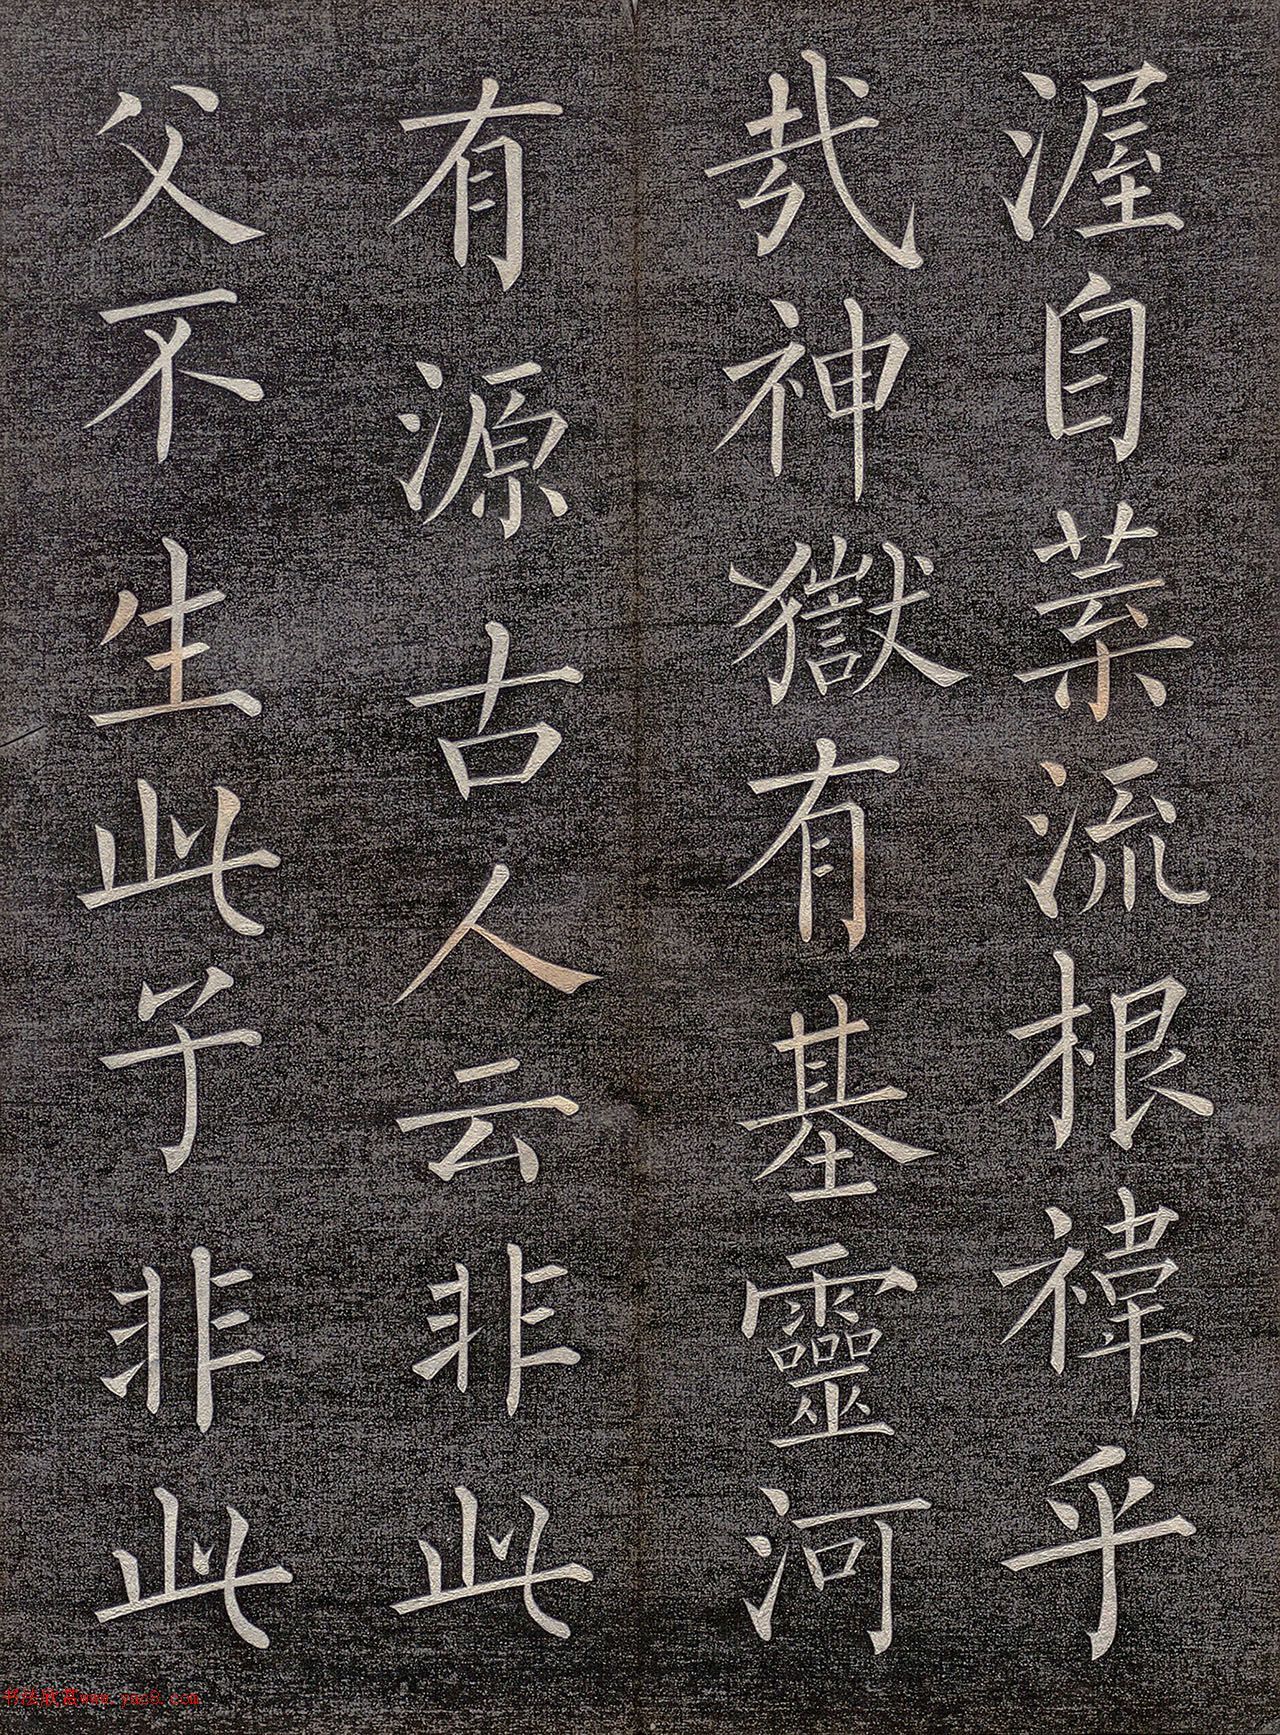 渥自葉流根禕乎
哉神嶽有基靈河
有源古人云非此
父不生此子非此
书法欣赏www.yac8.com